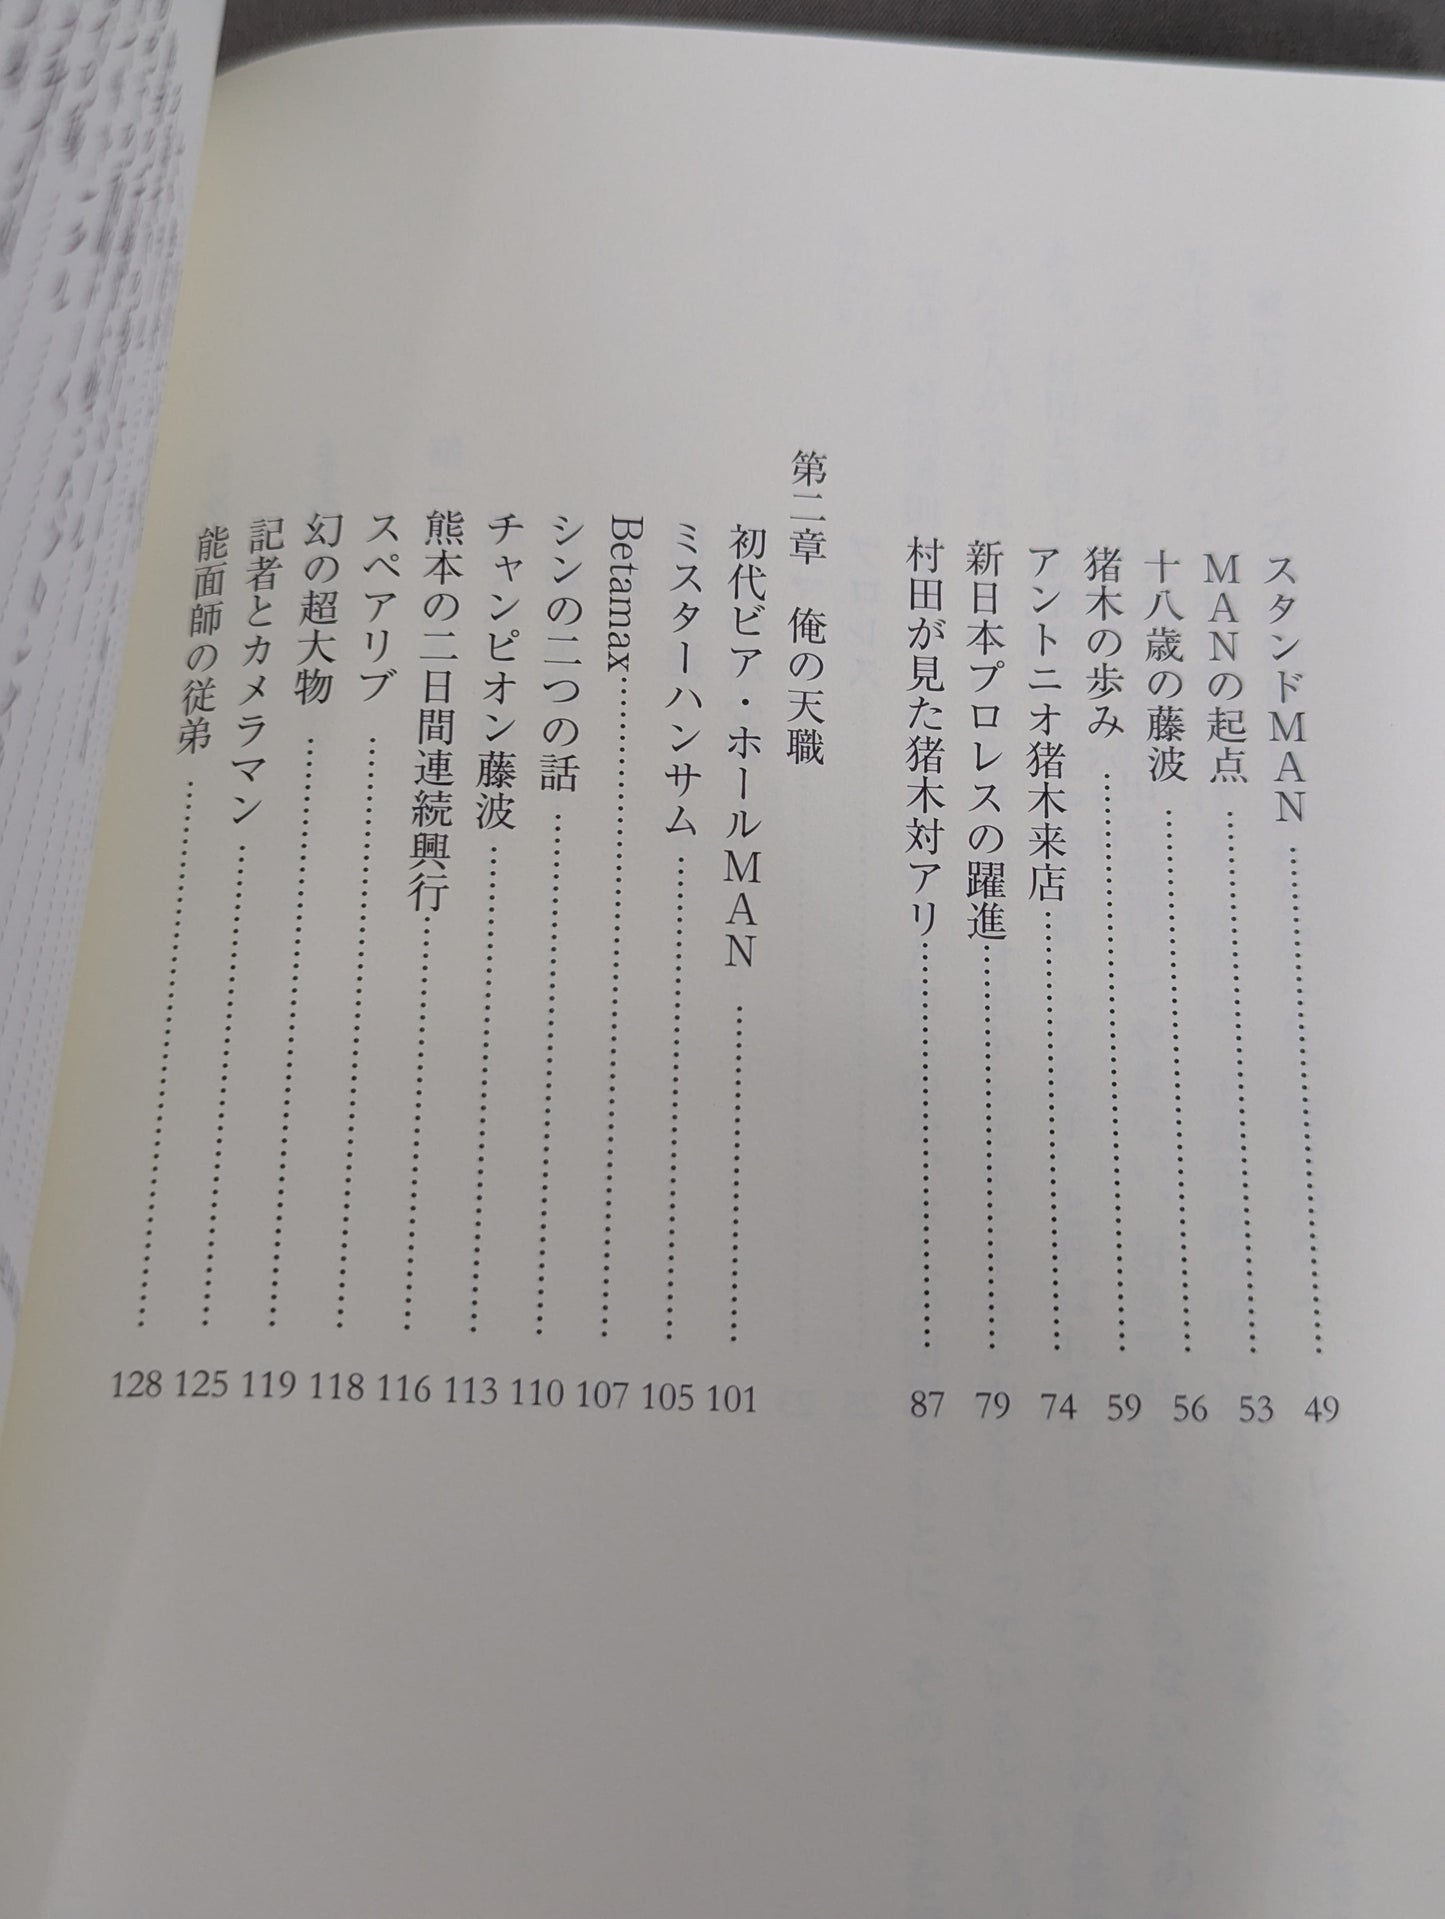 スタンドＭＡＮ……………………………49
ＭＡＮの起点……………………………53
十八歳の藤波……………………………56
猪木の歩み……………………………59
アントニオ猪木来店……………………………74
新日本プロレスの躍進……………………………79
村田が見た猪木対アリ……………………………87
第二章　俺の天職
初代ビア・ホールＭＡＮ……………………………101
ミスターハンサム……………………………105
Betamax……………………………107
シンの二つの話……………………………110
チャンピオン藤波……………………………113
熊本の二日間連続興行……………………………116
スペアリブ……………………………118
幻の超大物……………………………119
記者とカメラマン……………………………125
能面師の従弟……………………………128